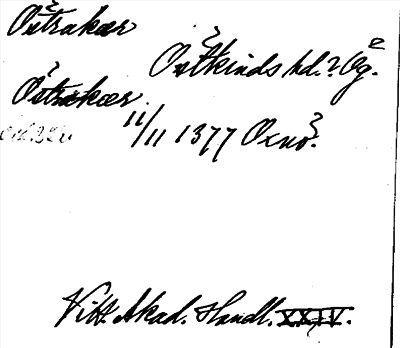 Östrakær
Östkinds hd.? Ög.
Östrakær
11/11 1377 Oxnö.
Vitt. Akad. Handl. XXIV.